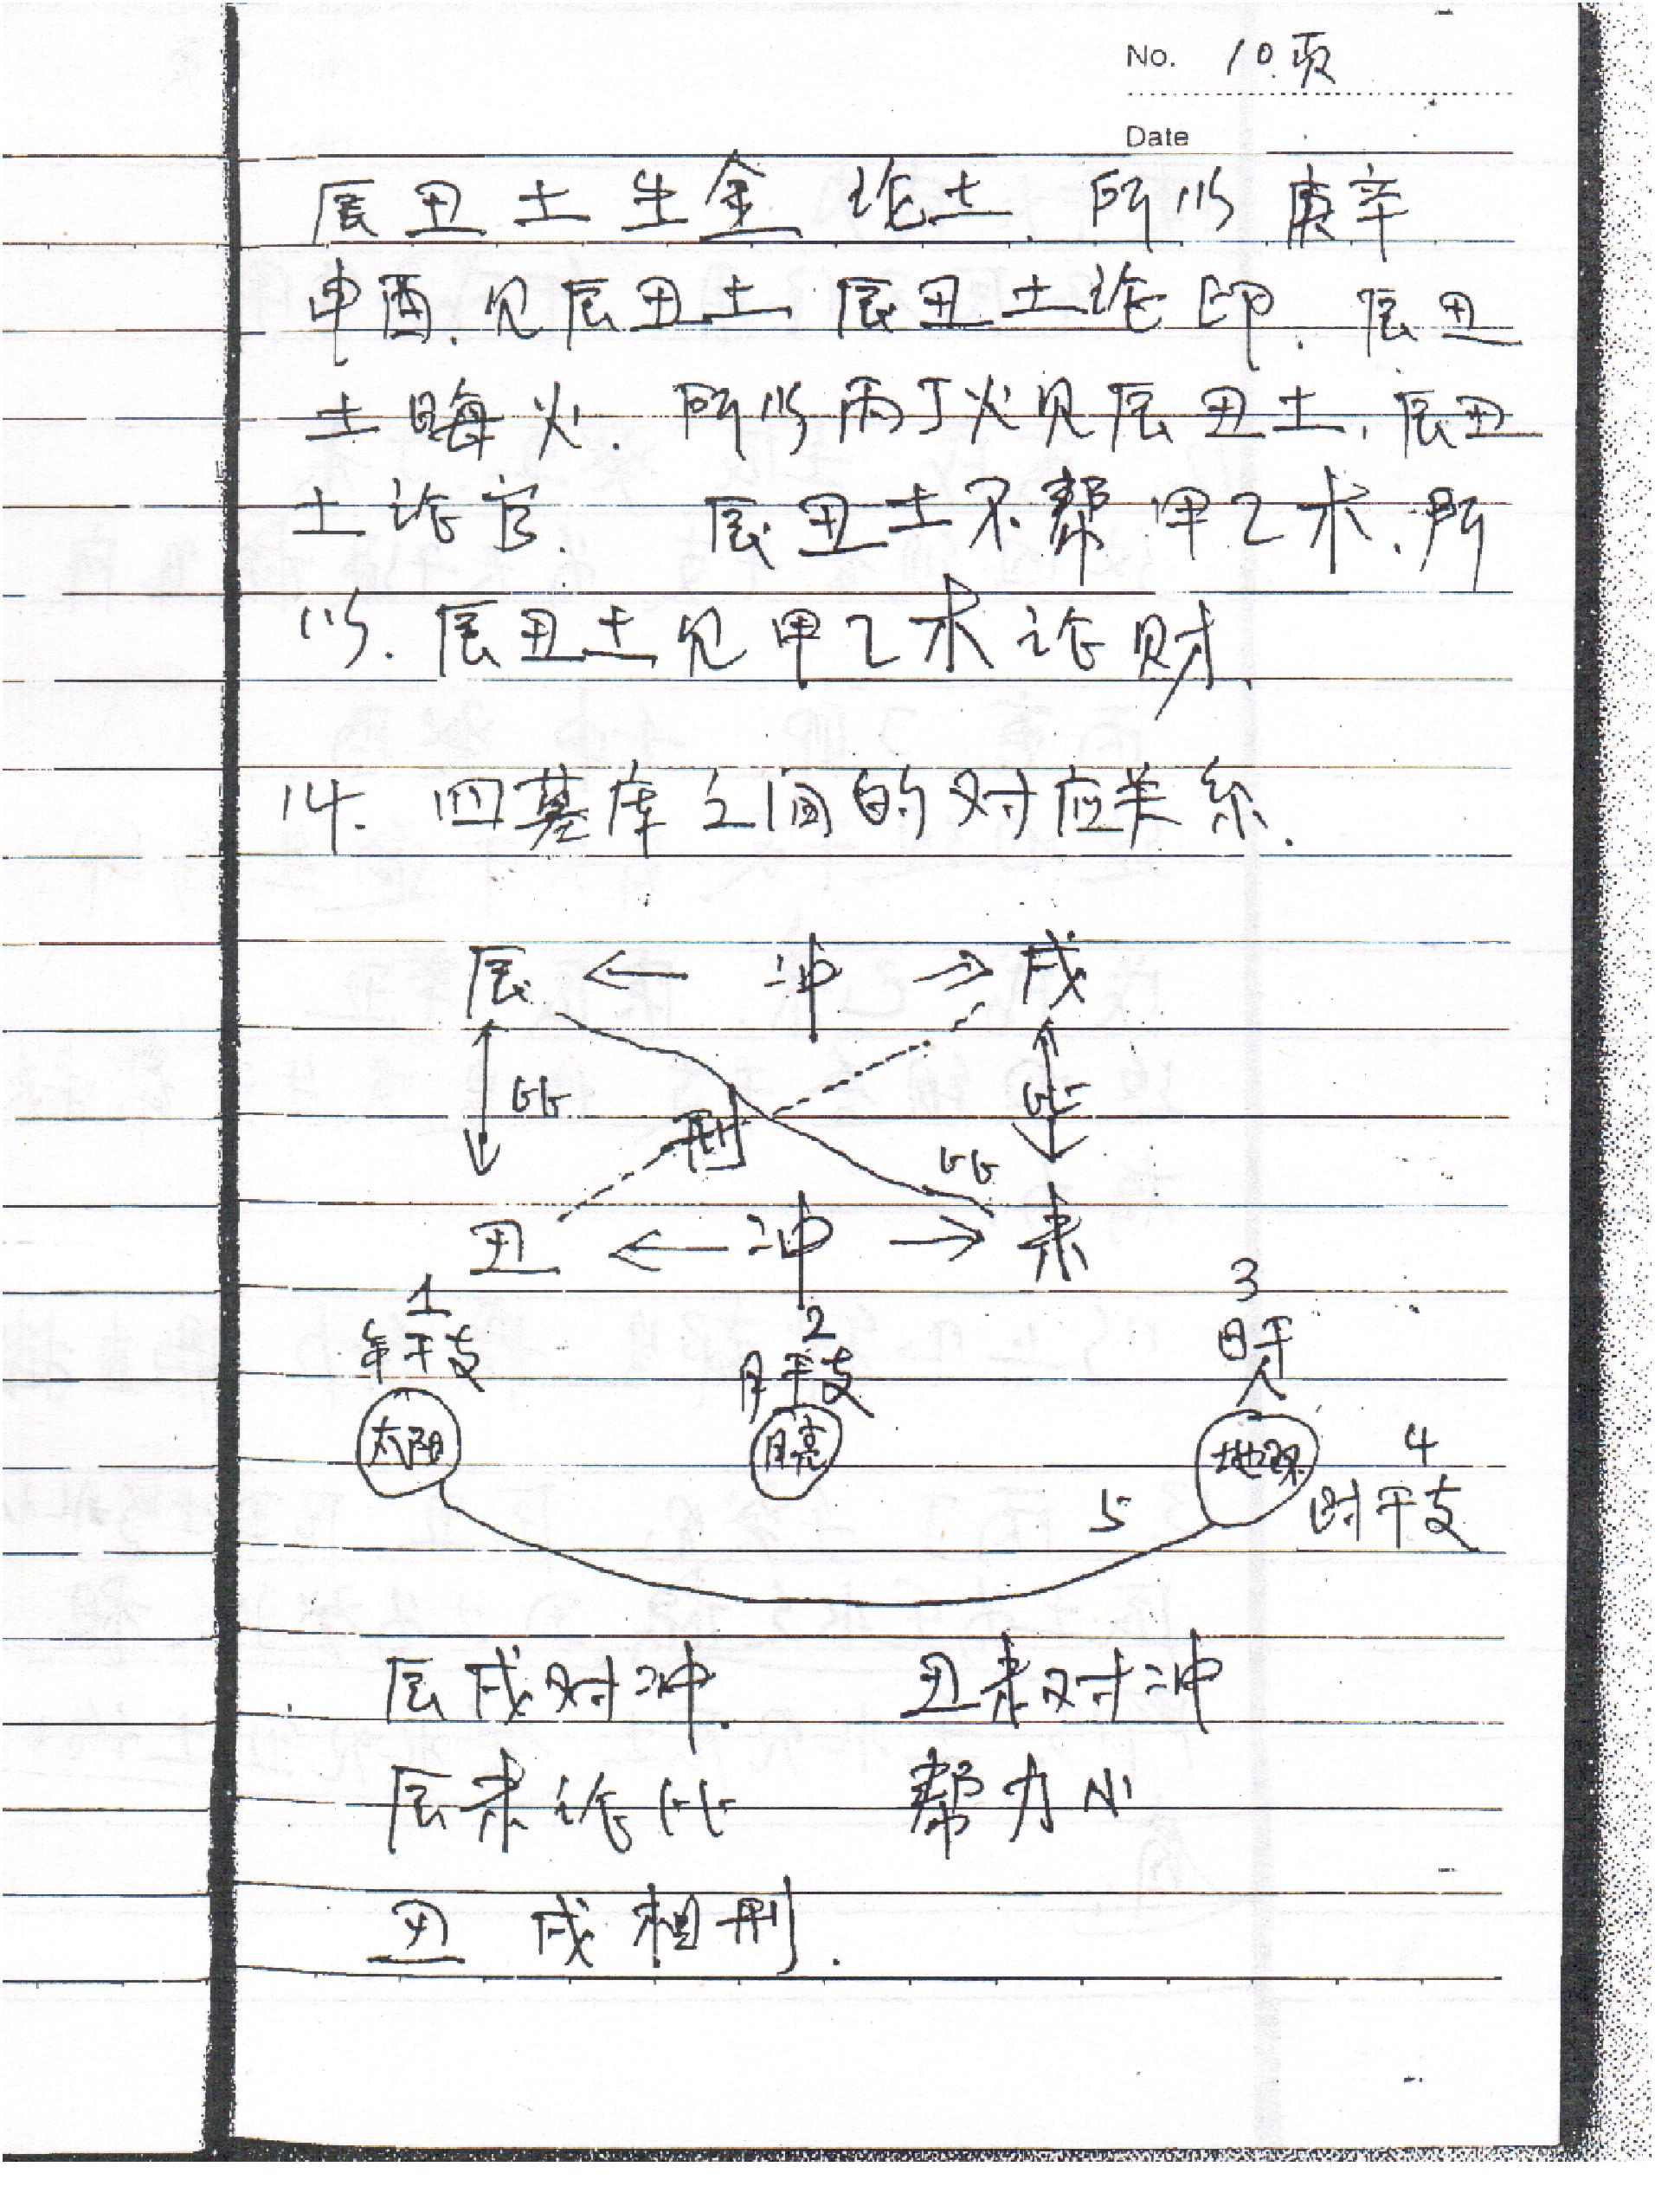 No. 10页
Date
辰丑土生金论土.所以庚辛
申酉.见辰丑土辰丑土论印.辰丑
土晦火.所以丙丁火见辰丑土.辰丑
土论官.辰丑土不帮甲乙木.所
以.辰丑土见甲乙木论财.
14.四墓库之间的对应关系.
辰 ← 冲 → 戌
比 刑 比 比
丑 ← 冲 → 未
1 2 3
年干支 月干支 日干
人
太阳 月亮 地球 4
5 时干支
辰戌对冲. 丑未对冲
辰未论比 帮力小
丑戌相刑.